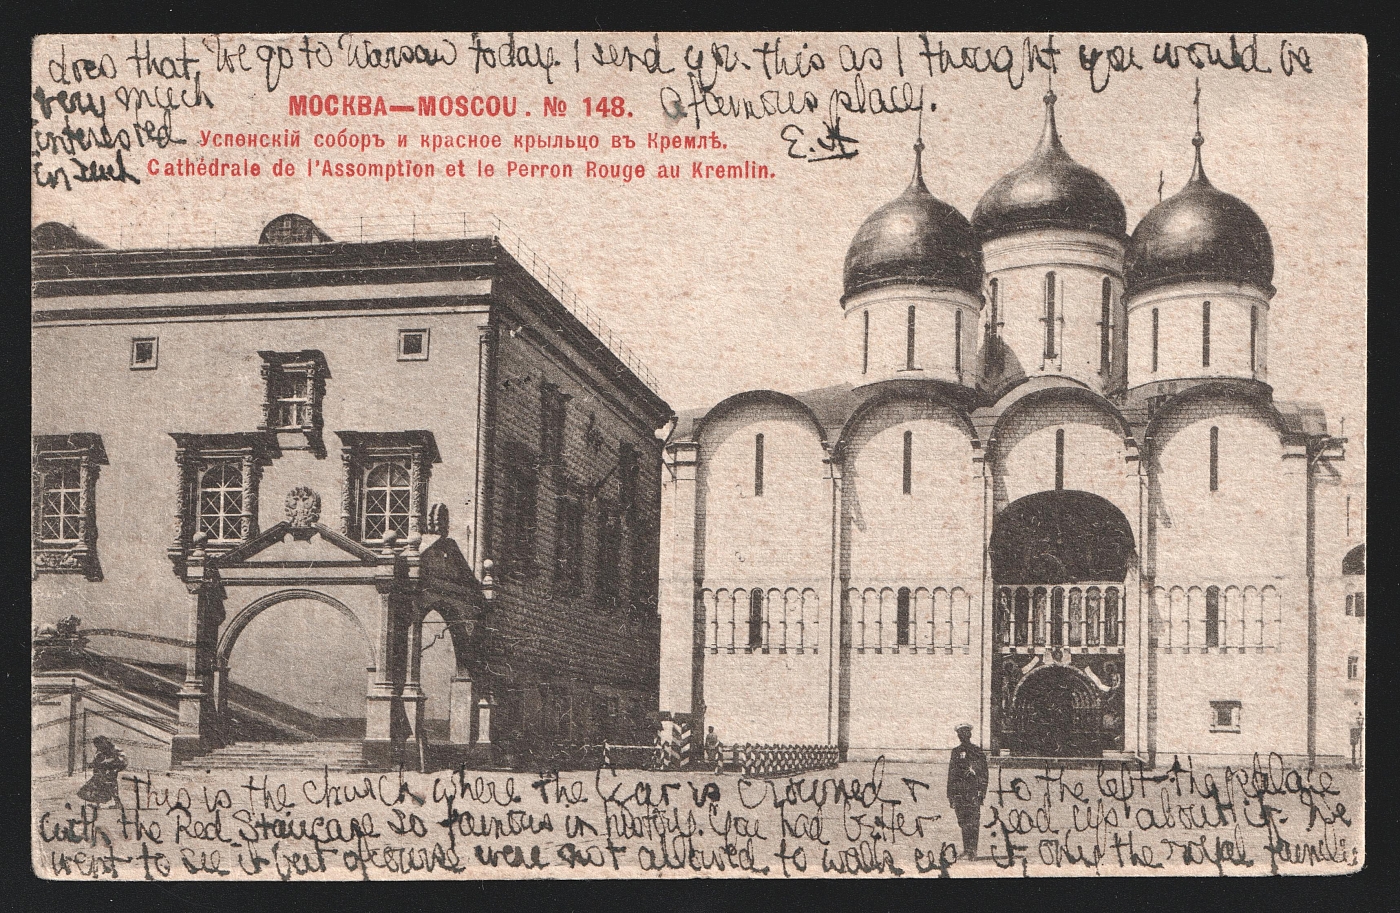 does that, We go to Warsaw today. I send you this as I thought you would be
very much
interested
in such
a famous place.
E.A
МОСКВА—MOSCOU. № 148.
Успенскій соборъ и красное крыльцо въ Кремлѣ.
Cathédrale de l'Assomption et le Perron Rouge au Kremlin.
This is the church where the Czar is crowned & to the left the palace
with the Red Staircase so famous in history. You had better read up about it. We
went to see it but of course were not allowed to walk up it, only the royal family